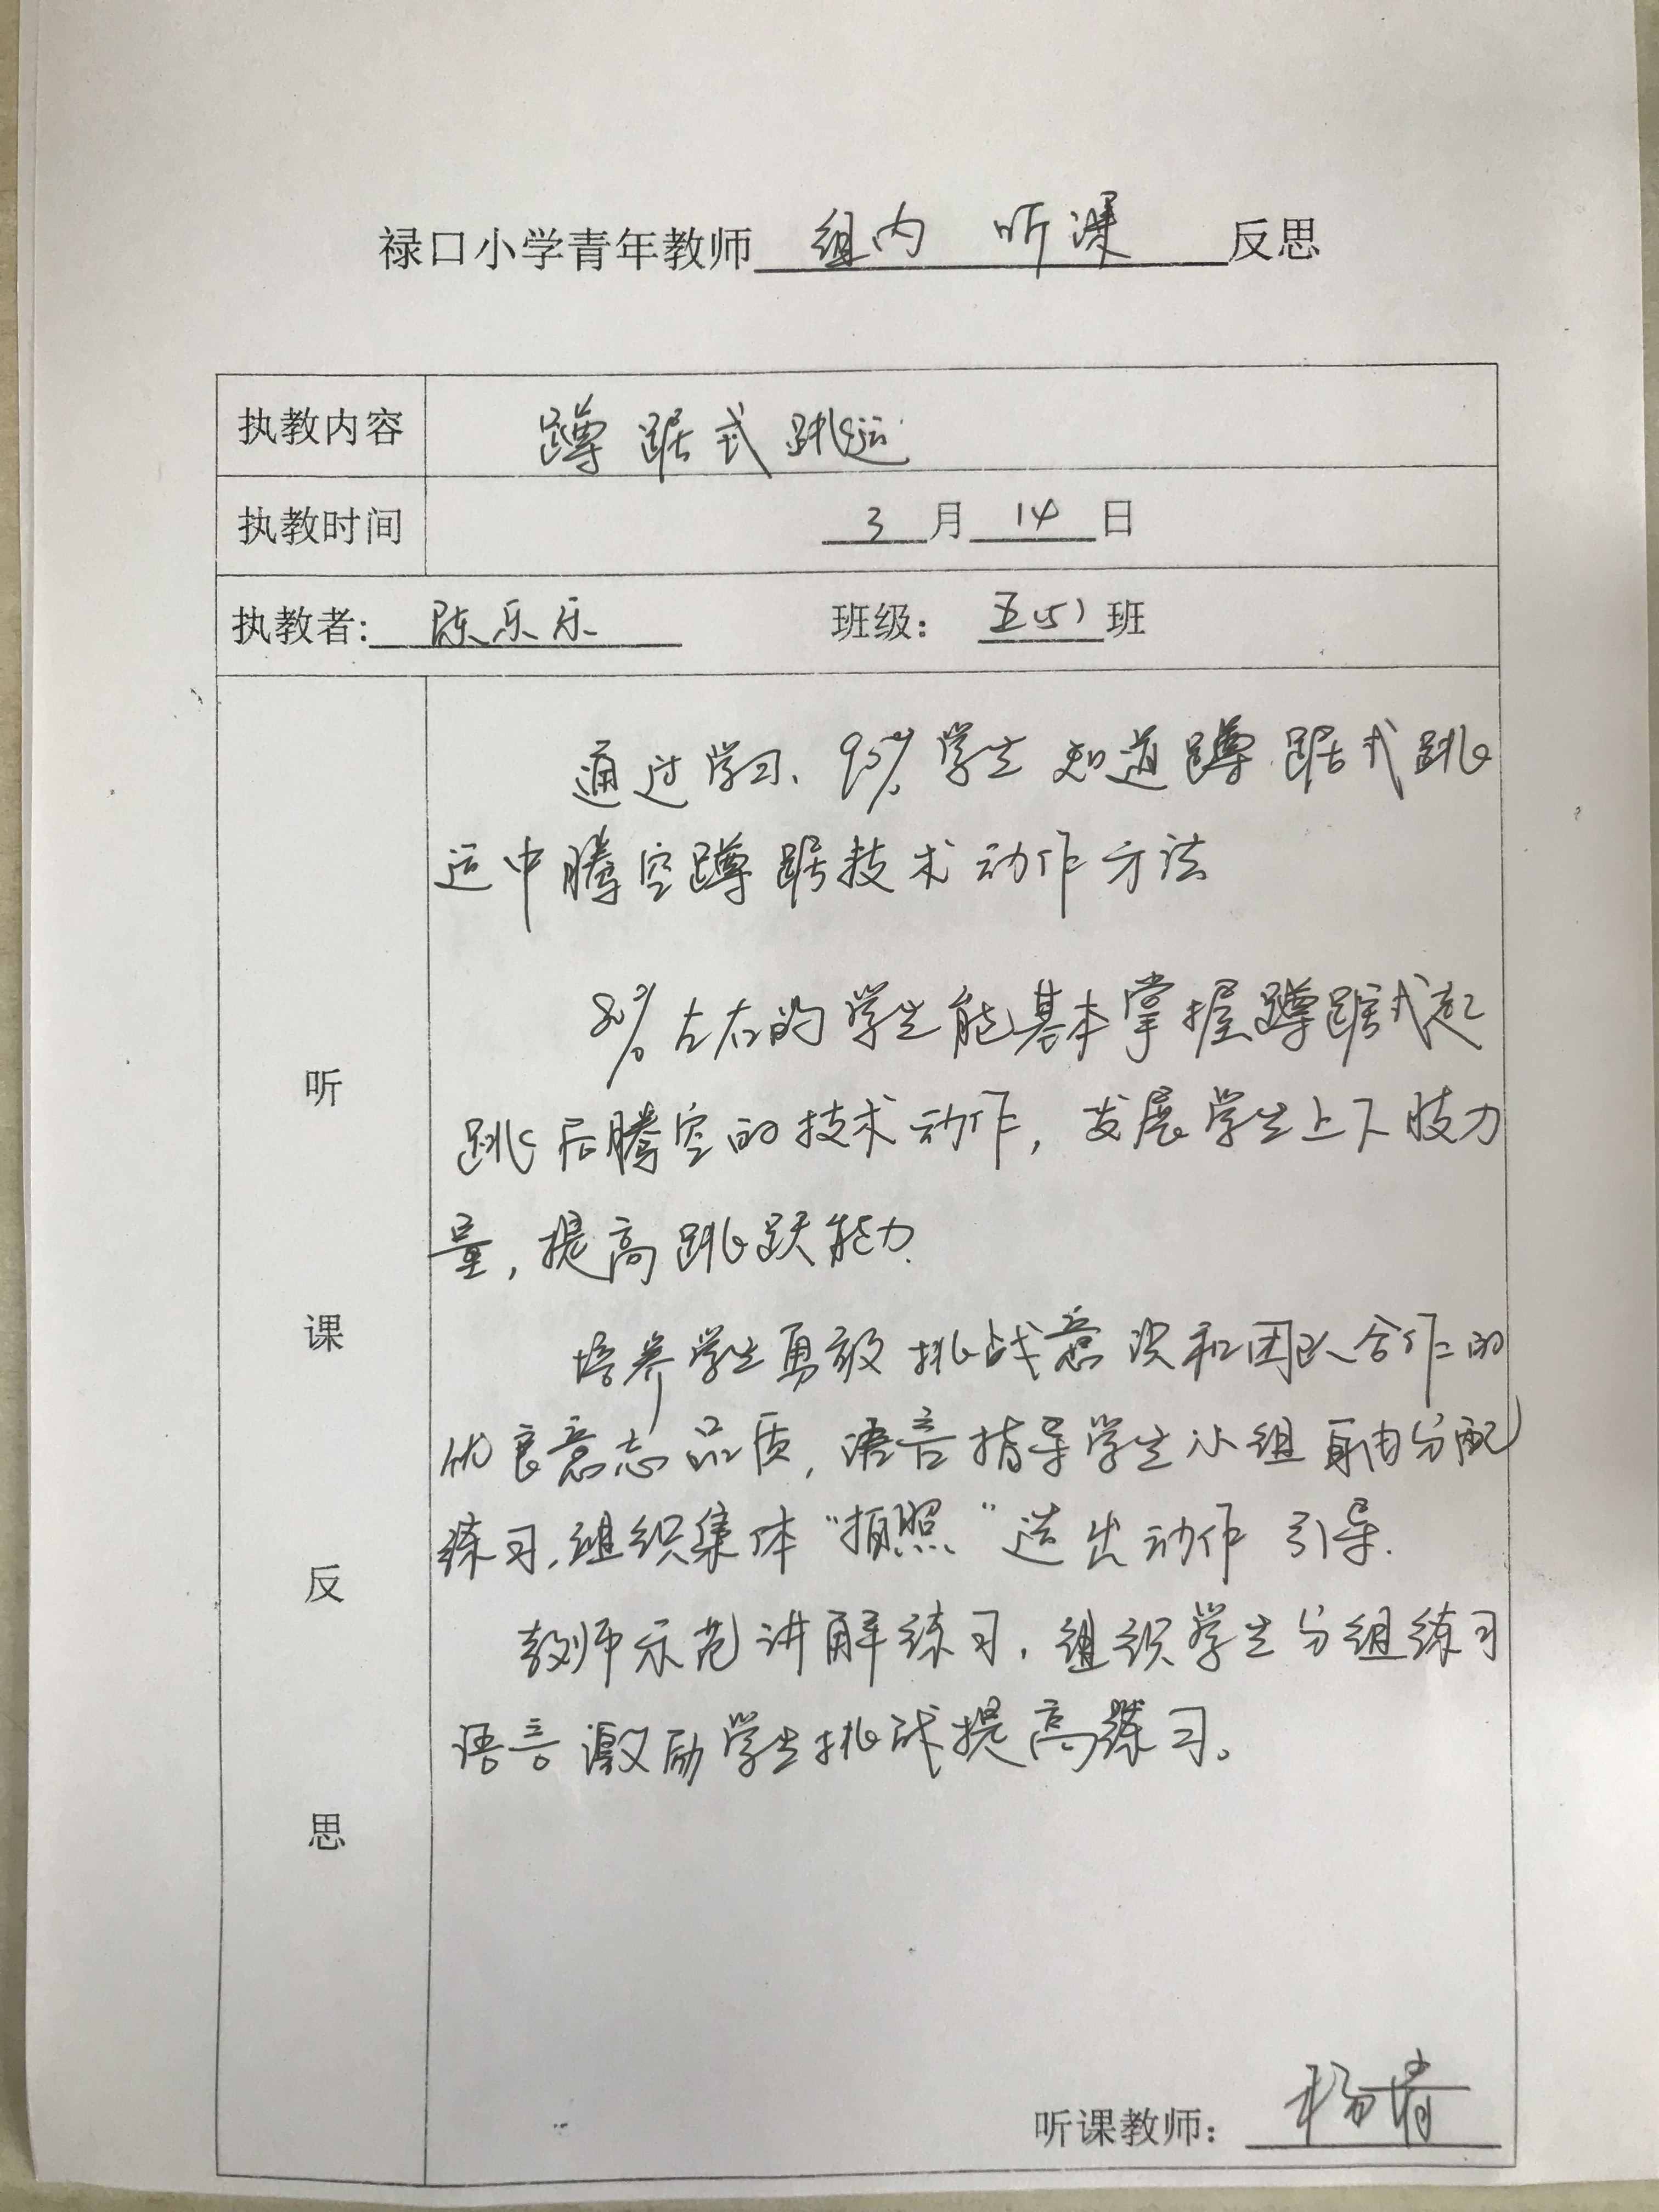 禄口小学青年教师 组内 听课 反思
执教内容 蹲踞式跳远
执教时间 3月14日
执教者: 陈乐乐 班级: 五(5)班
听课反思
通过学习、95%学生知道蹲踞式跳
远中腾空蹲踞技术动作方法
80%左右的学生能基本掌握蹲踞式起
跳后腾空的技术动作,发展学生上下肢力
量,提高跳跃能力.
培养学生勇敢挑战意识和团队合作的
优良意志品质,语言指导学生小组自由分配
练习,组织集体“拍照”造出动作引导.
教师示范讲解练习,组织学生分组练习
语言激励学生挑战提高练习。
听课教师: 杨